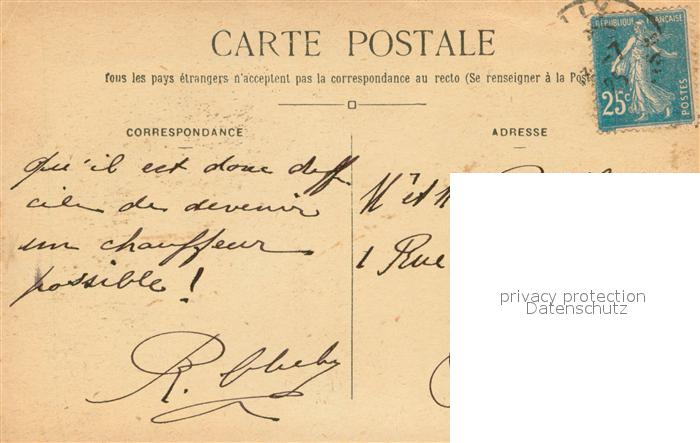 CARTE POSTALE
Tous les pays étrangers n'acceptent pas la correspondance au recto (Se renseigner à la Poste
RÉPUBLIQUE FRANÇAISE
25c
POSTES
CORRESPONDANCE
ADRESSE
qu'il est donc diffi
cile de devenir
un chauffeur
possible !
R.
Mr et M
1 Rue
privacy protection
Datenschutz